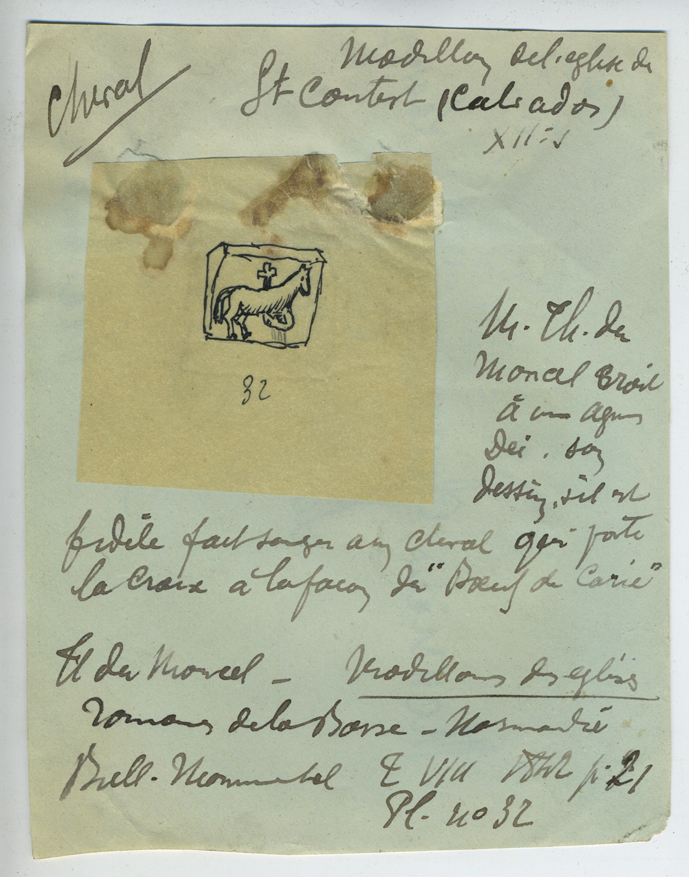 Cheval
Modillon de l'eglise de
St Contest (Calvados)
XIIe s
32
M. Th. du
Moncel croit
à un agnus
Dei. son
dessin, s'il est
fidèle fait songer a un cheval qui porte
la croix à la façon du "Bœuf de Carie"
Th du Moncel - Modillons des eglises
romanes de la Basse-Normandie
Bull. Monumental T VIII 1842 p. 21
Pl. no 32